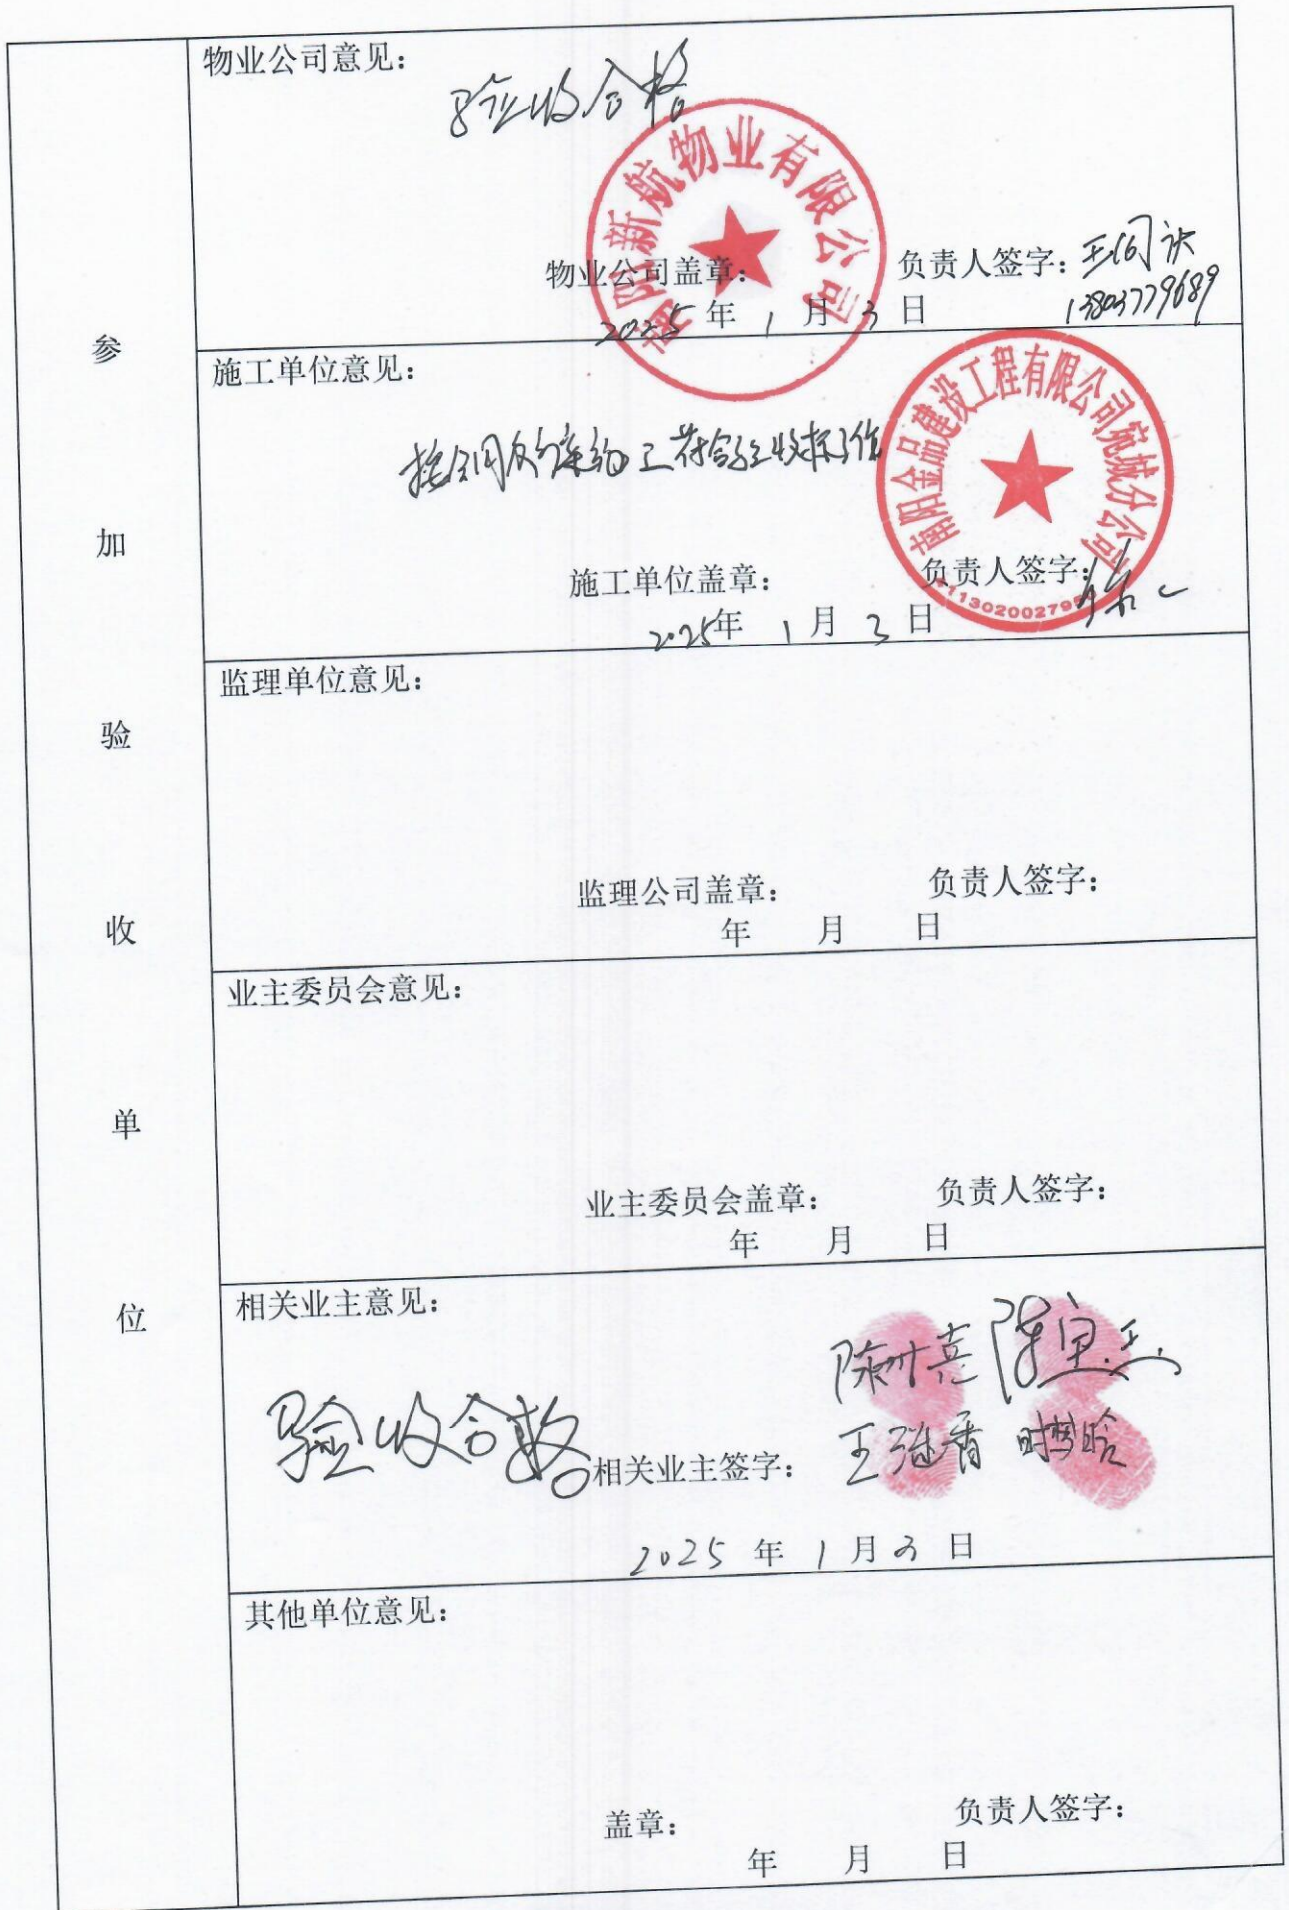 物业公司意见：
验收合格
南阳新航物业有限公司
物业公司盖章： 负责人签字：王
13803779689
2025年 1月 3日
参加验收单位
施工单位意见：
按合同及 施工符合验收标准
南阳金品建设工程有限公司宛城分公司
施工单位盖章： 负责人签字：
2025年 1月 3日
监理单位意见：
监理公司盖章： 负责人签字：
年 月 日
业主委员会意见：
业主委员会盖章： 负责人签字：
年 月 日
相关业主意见：
验收合格。
相关业主签字： 王 香
2025年 1月 3日
其他单位意见：
盖章： 负责人签字：
年 月 日